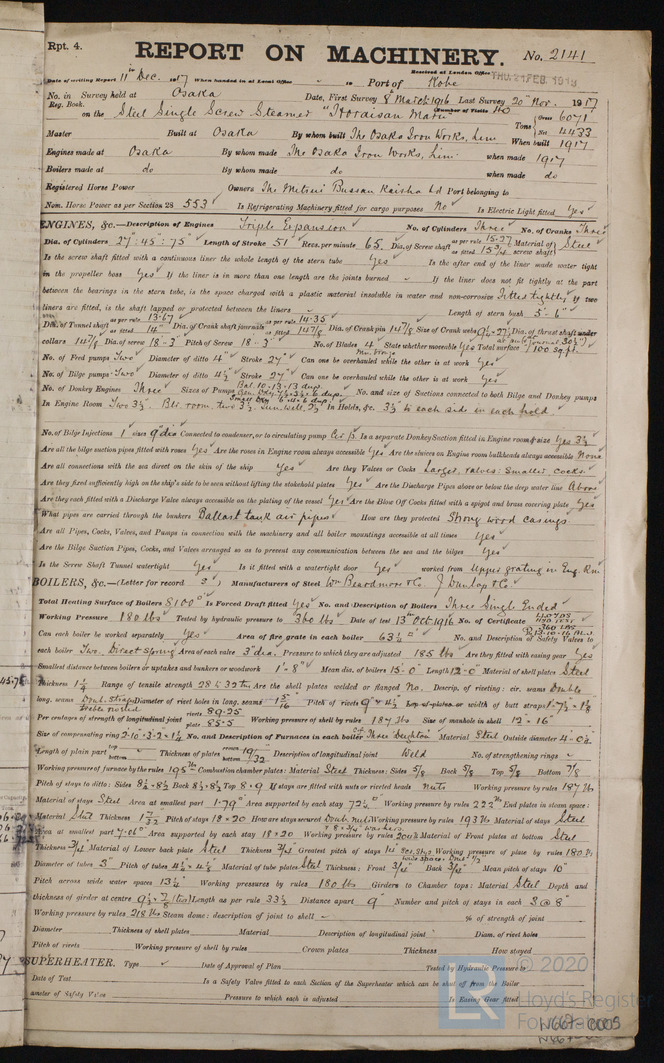 Rpt. 4.
REPORT ON MACHINERY. No. 2141
Received at London Office THU. 21 FEB. 1918
Date of writing Report 11th Dec. 1917 When handed in at Local Office 19 Port of Kobe
No. in Survey held at Osaka Date, First Survey 8 March 1916 Last Survey 20th Nov. 1917
Reg. Book. Number of Visits 40
on the Steel Single Screw Steamer Gross 6071
Tons Net 4433
Master Built at Osaka By whom built The Osaka Iron Works, Lim When built 1917
Engines made at Osaka By whom made The Osaka Iron Works, Lim when made 1917
Boilers made at do By whom made do when made do
Registered Horse Power Owners The Mitsui Bussan Kaisha Ld Port belonging to
Nom. Horse Power as per Section 28 553 Is Refrigerating Machinery fitted for cargo purposes No Is Electric Light fitted Yes
ENGINES, &c.—Description of Engines Triple Expansion No. of Cylinders Three No. of Cranks Three
Dia. of Cylinders 27": 45": 75" Length of Stroke 51" Revs. per minute 65 Dia. of Screw shaft as per rule 15.27 as fitted Material of screw shaft Steel
Is the screw shaft fitted with a continuous liner the whole length of the stern tube Yes Is the after end of the liner made water tight
in the propeller boss Yes If the liner is in more than one length are the joints burned If the liner does not fit tightly at the part
between the bearings in the stern tube, is the space charged with a plastic material insoluble in water and non-corrosive Fitted tightly If two
liners are fitted, is the shaft lapped or protected between the liners Length of stern bush 5'-6"
Dia. of Tunnel shaft as per rule 13.67 as fitted 14" Dia. of Crank shaft journals as per rule 14.35 as fitted 14 7/8 Dia. of Crank pin 14 7/8 Size of Crank webs Dia. of thrust shaft under
collars 14 7/8 Dia. of screw 18-3 Pitch of Screw 18-3 No. of Blades 4 State whether moveable Yes Total surface 100 sq. ft.
No. of Feed pumps Two Diameter of ditto 4" Stroke 27" Can one be overhauled while the other is at work Yes
No. of Bilge pumps Two Diameter of ditto 4 1/2 Stroke 27" Can one be overhauled while the other is at work Yes
No. of Donkey Engines Three Sizes of Pumps No. and size of Suctions connected to both Bilge and Donkey pumps
In Engine Room Two 3 1/2. Blr room, two 3 1/2. In Holds, &c. 3 1/2 to each side in each hold
No. of Bilge Injections 1 sizes 9" dia Connected to condenser, or to circulating pump Cir. p. Is a separate Donkey Suction fitted in Engine room & size Yes 3 1/2
Are all the bilge suction pipes fitted with roses Yes Are the roses in Engine room always accessible Yes Are the sluices on Engine room bulkheads always accessible None
Are all connections with the sea direct on the skin of the ship Yes Are they Valves or Cocks Larger, valves: Smaller, cocks.
Are they fixed sufficiently high on the ship's side to be seen without lifting the stokehold plates Yes Are the Discharge Pipes above or below the deep water line Above
Are they each fitted with a Discharge Valve always accessible on the plating of the vessel Yes Are the Blow Off Cocks fitted with a spigot and brass covering plate Yes
What pipes are carried through the bunkers Ballast tank air pipes How are they protected Strong wood casings
Are all Pipes, Cocks, Valves, and Pumps in connection with the machinery and all boiler mountings accessible at all times Yes
Are the Bilge Suction Pipes, Cocks, and Valves arranged so as to prevent any communication between the sea and the bilges Yes
Is the Screw Shaft Tunnel watertight Yes Is it fitted with a watertight door Yes worked from Upper grating in Eng. Rm
BOILERS, &c.—(Letter for record S) Manufacturers of Steel Wm Beardmore & Co. J Dunlop & Co.
Total Heating Surface of Boilers 8100 Is Forced Draft fitted Yes No. and Description of Boilers Three Single Ended
Working Pressure 180 lbs Tested by hydraulic pressure to 360 lbs Date of test 13th Oct. 1916 No. of Certificate
LLOYDS TEST 360 LBS 13-10-16
Can each boiler be worked separately Yes Area of fire grate in each boiler 63 1/4 No. and Description of Safety Valves to
each boiler Two, Direct Spring Area of each valve 3" dia. Pressure to which they are adjusted 185 lbs Are they fitted with easing gear Yes
Smallest distance between boilers or uptakes and bunkers or woodwork 1'-8" Mean dia. of boilers 15-0 Length 12-0 Material of shell plates Steel
Thickness 1 1/4 Range of tensile strength 28 to 32 tns Are the shell plates welded or flanged No. Descrip. of riveting: cir. seams Double
long. seams Doub. Straps Diameter of rivet holes in long. seams 1 5/16 Pitch of rivets 9" Lap of plates or width of butt straps
Per centages of strength of longitudinal joint rivets 89.25 plates 85.5 Working pressure of shell by rules 187 lbs Size of manhole in shell 12 × 16"
Size of compensating ring No. and Description of Furnaces in each boiler Three Deighton Material Steel Outside diameter
Length of plain part top bottom Thickness of plates crown bottom 19/32 Description of longitudinal joint Weld No. of strengthening rings
Working pressure of furnace by the rules 195 lbs Combustion chamber plates: Material Steel Thickness: Sides 5/8 Back 5/8 Top 5/8 Bottom 7/8
Pitch of stays to ditto: Sides Back Top 8×9 If stays are fitted with nuts or riveted heads nuts Working pressure by rules 187 lbs
Material of stays Steel Area at smallest part 1.79 Area supported by each stay Working pressure by rules End plates in steam space:
Material Steel Thickness Pitch of stays 18 × 20 How are stays secured Doub. nuts Working pressure by rules 193 lbs Material of stays Steel
Area at smallest part 7.06 Area supported by each stay 18 × 20 Working pressure by rules Material of Front plates at bottom Steel
Thickness Material of Lower back plate Steel Thickness Greatest pitch of stays Working pressure of plate by rules 180 lbs
Diameter of tubes 3" Pitch of tubes 4 1/4 × 4 1/4 Material of tube plates Steel Thickness: Front Back Mean pitch of stays 10"
Pitch across wide water spaces 13 1/4 Working pressures by rules 180 lbs Girders to Chamber tops: Material Steel Depth and
thickness of girder at centre Length as per rule 33 1/2 Distance apart 9" Number and pitch of stays in each 3 @ 8"
Working pressure by rules 218 lbs Steam dome: description of joint to shell % of strength of joint
Diameter Thickness of shell plates Material Description of longitudinal joint Diam. of rivet holes
Pitch of rivets Working pressure of shell by rules Crown plates Thickness How stayed
SUPERHEATER. Type Date of Approval of Plan Tested by Hydraulic Pressure to
Date of Test Is a Safety Valve fitted to each Section of the Superheater which can be shut off from the Boiler
Diameter of Safety Valve Pressure to which each is adjusted Is Easing Gear fitted
© 2020
LR
Lloyd's Register
Foundation